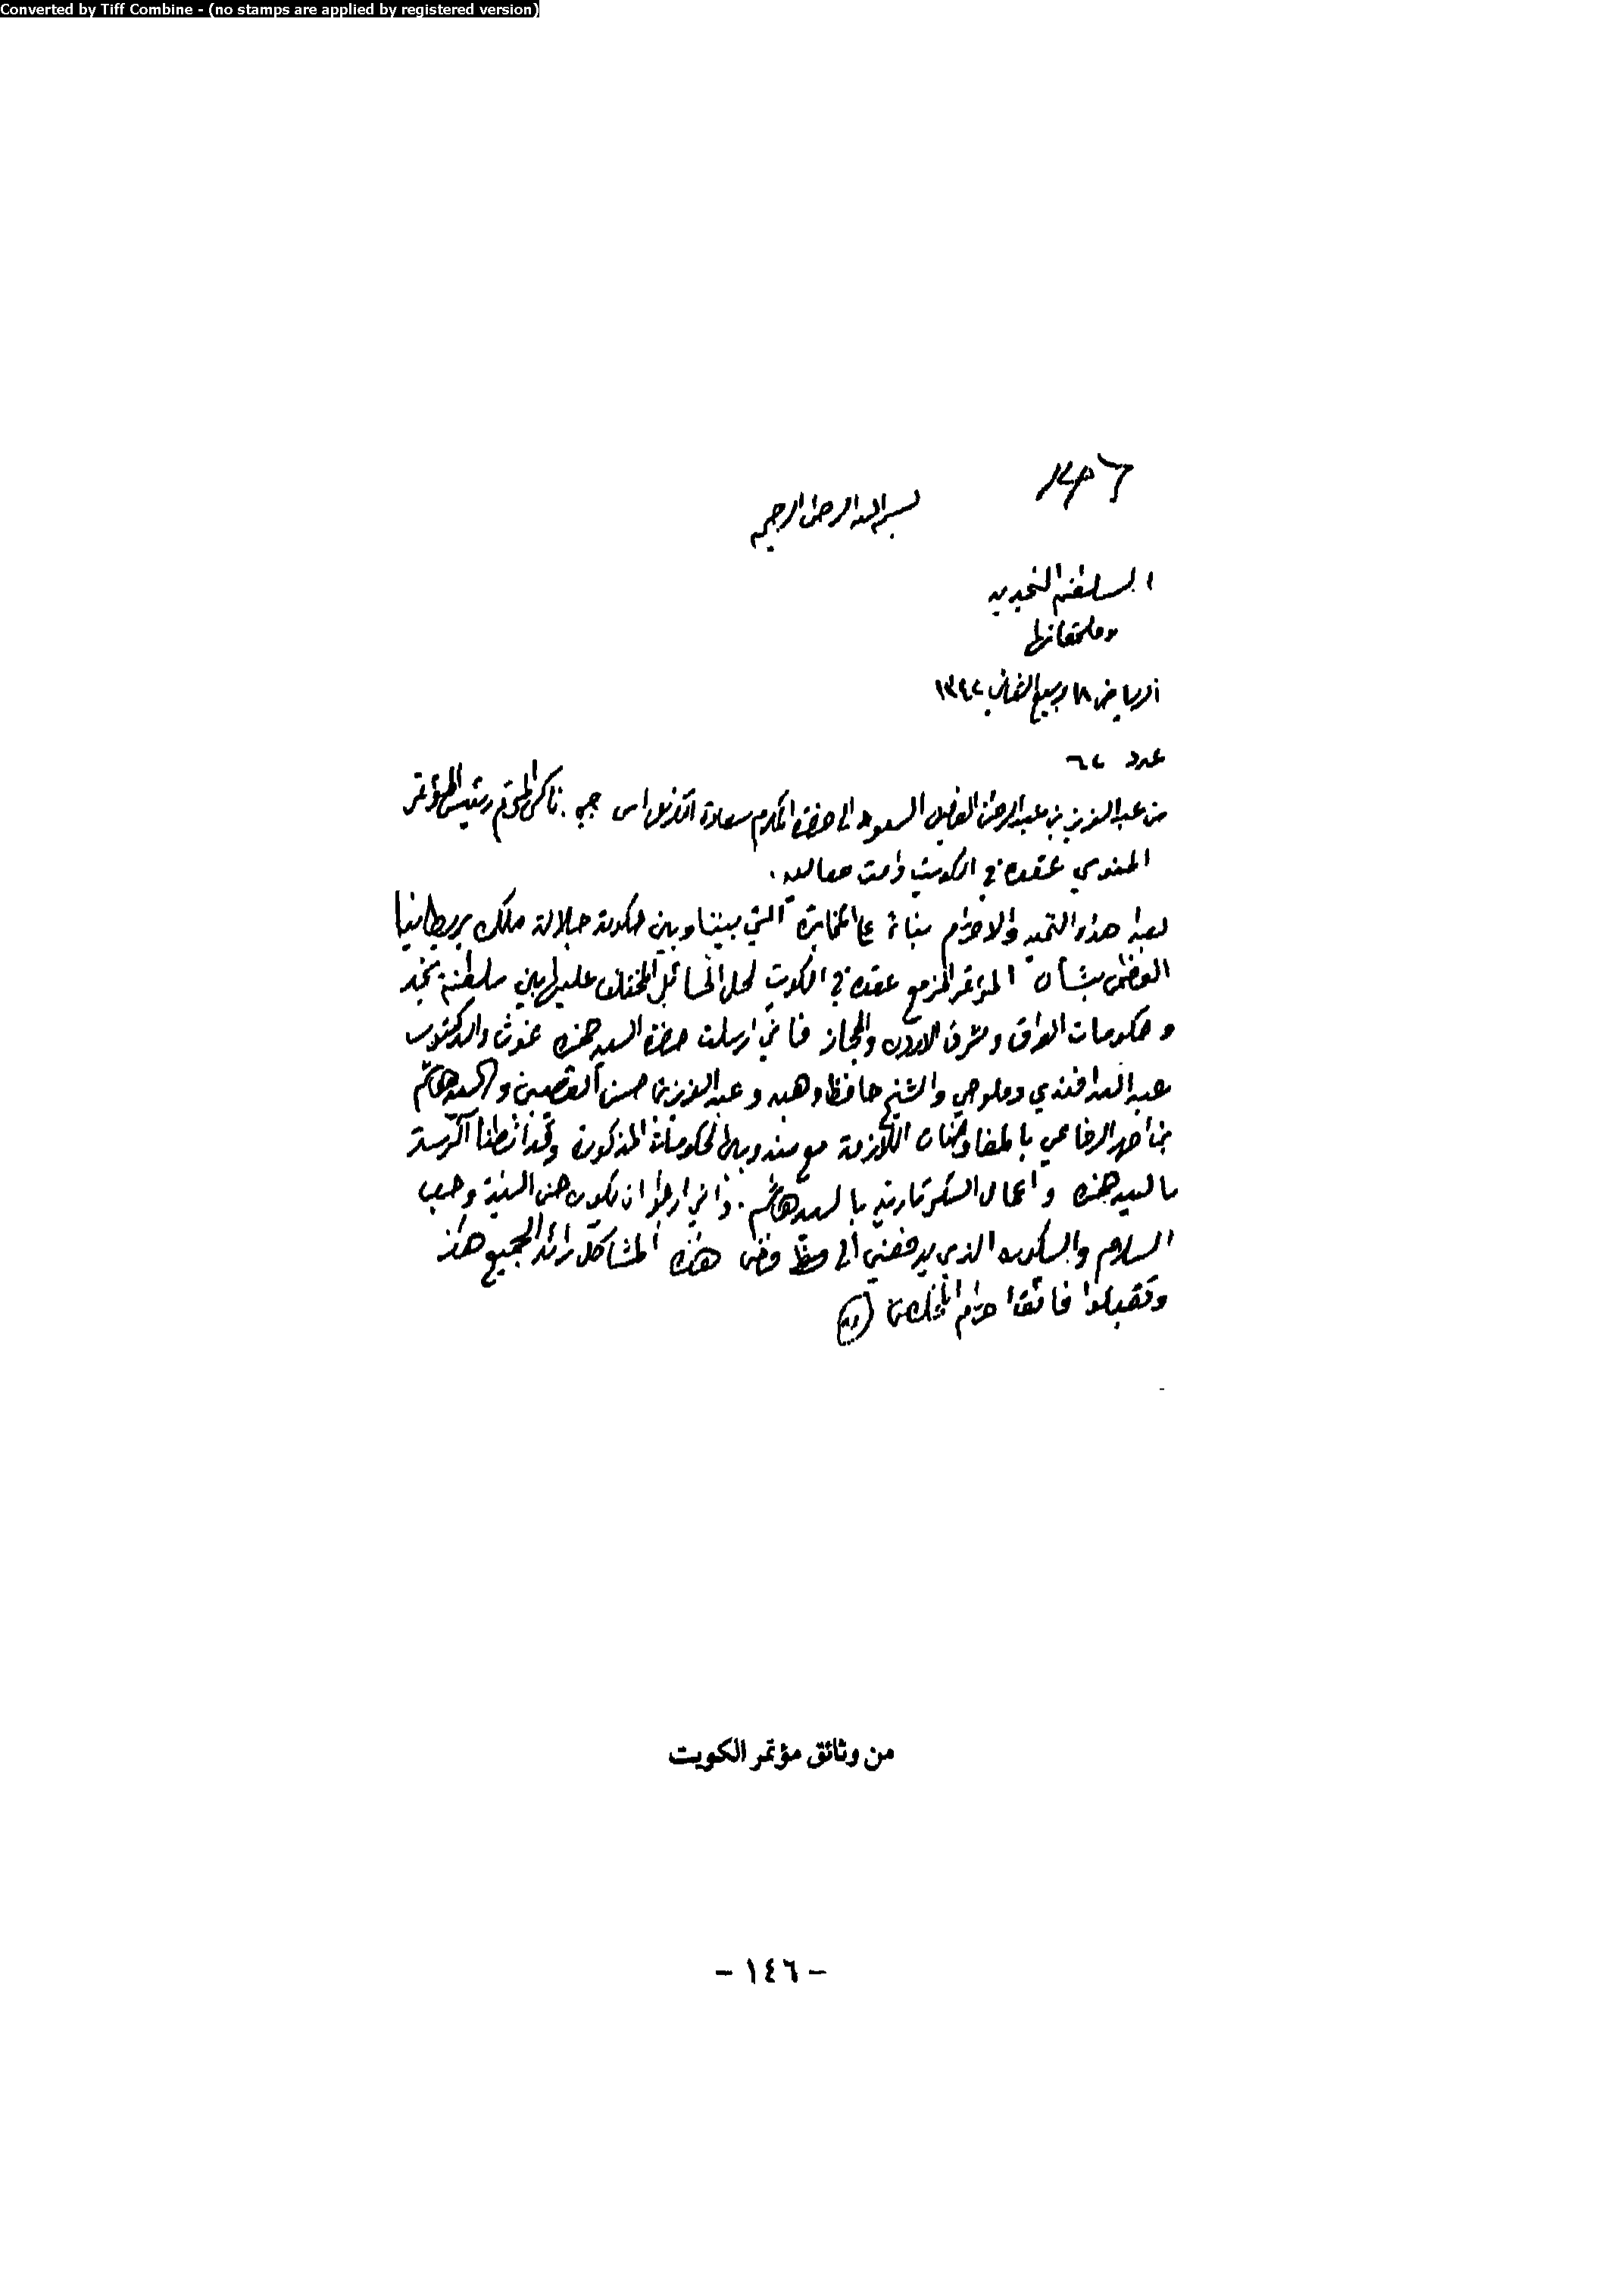 Converted by Tiff Combine - (no stamps are applied by registered version)
١٣٦
بسم الله الرحمن الرحيم
السلطنة النجدية
وملحقاتها
الرياض ١٨ ربيع الثاني ١٣٤٢
عدد ٦٤
من عبد العزيز بن عبد الرحمن الفيصل السعود الى حضرة المكرم سعادة الكرنل اس جي . ناكس المحترم رئيس المؤتمر
المنوي عقده في الكويت دامت معاليه .
بعد هذا التحية والاحترام بناء على المخابرة التي بيننا وبين حكومة جلالة ملك بريطانيا
العظمى بشأن المؤتمر المزمع عقده في الكويت لحل المسائل المختلف عليها بين سلطنة نجد
وحكومات العراق وشرق الاردن والحجاز فاني ارسلت حضرة السيد حمزه غوث والدكتور
عبد الله افندي دملوجي والشيخ حافظ وهبه وعبد العزيز بن حسن القصيبي والسيد هاشم
بن احمد الرفاعي بالمفاوضات اللازمة مع مندوبي الحكومات المذكورة وقد انطنا الرئسة
بالسيد حمزه واعمال السكرتارية بالسيد هاشم . واني ارجوا ان تكون حسن النية وحب
السلام والسكون الذي يدفعني الى فض هذه المشاكل رائد الجميع هذا
وتقبلوا فائق احترام المخلص
من وثائق مؤتمر الكويت
- ١٤٦ -